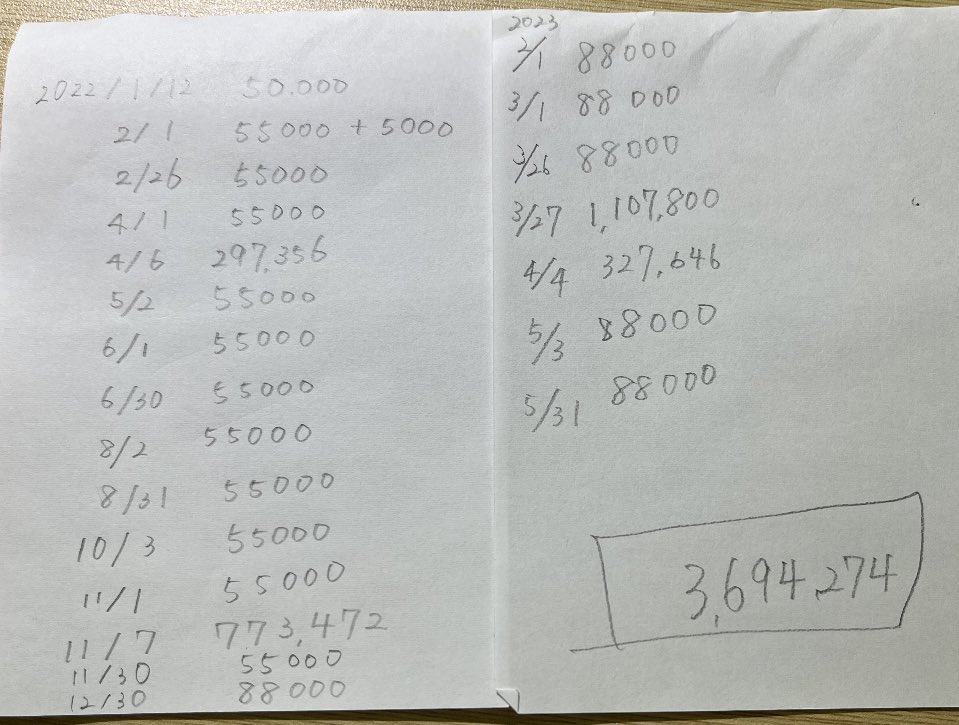 2022/1/12 50.000
2/1 55000 + 5000
2/26 55000
4/1 55000
4/6 297,356
5/2 55000
6/1 55000
6/30 55000
8/2 55000
8/31 55000
10/3 55000
11/1 55000
11/7 773,472
11/30 55000
12/30 88000
2023
2/1 88000
3/1 88000
3/26 88000
3/27 1,107,800
4/4 327,646
5/3 88000
5/31 88000
3,694,274